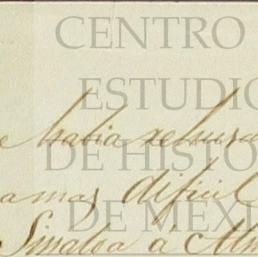 CENTRO
ESTUDIO
e habia rehusa
DE HISTO
a mas dificil
DE MEXI
Sinaloa á